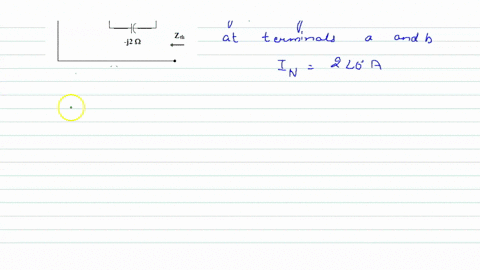 -j2 Ω
Z_th
at terminals a and b
I_N = 2∠0° A